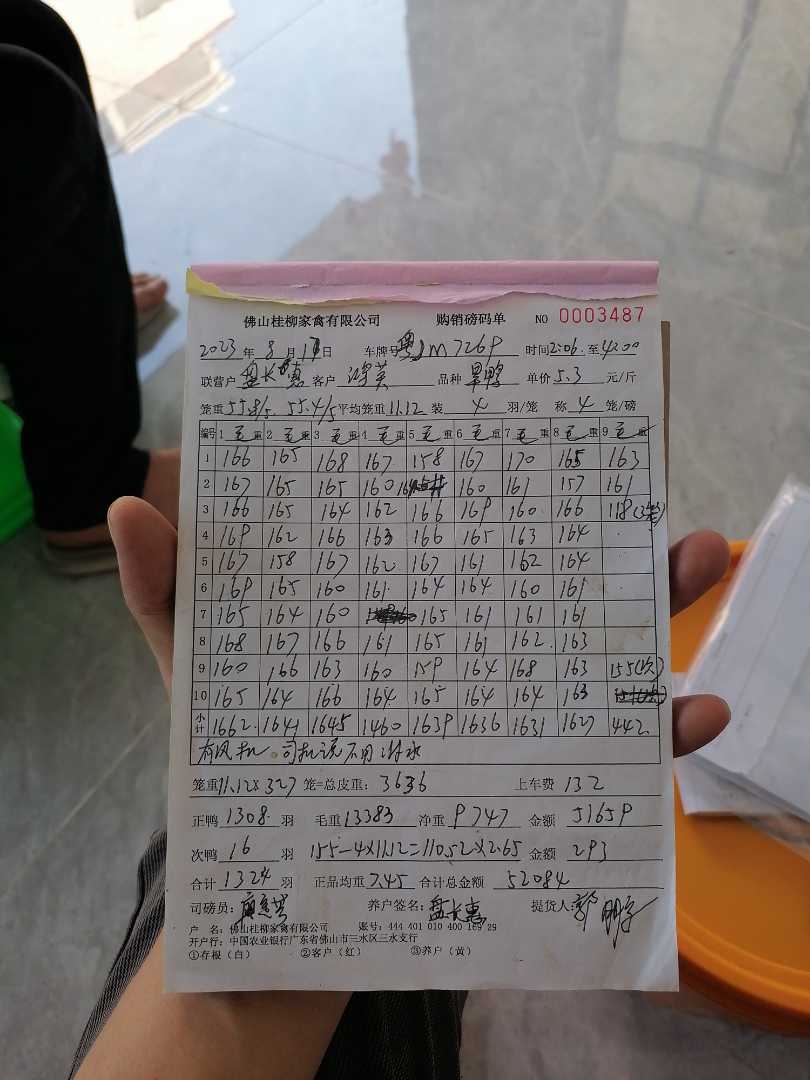 佛山桂柳家禽有限公司 购销磅码单 NO 0003487
2023年8月17日 车牌号 粤JM7269 时间2:06至4:00
联营户 盘长惠 客户 品种 单价5.3元/斤
笼重55.8/5 55.4/5平均笼重11.12装4羽/笼 称4笼/磅
编号 1毛重 2毛重 3毛重 4毛重 5毛重 6毛重 7毛重 8毛重 9毛重
1 166 165 168 167 158 167 170 165 163
2 167 165 165 160 160 161 157 161
3 166 165 164 162 166 169 160 166 118(3笼)
4 169 162 166 163 166 165 163 164
5 167 158 167 162 167 161 162 164
6 169 165 160 161 164 164 160 161
7 165 164 160 165 161 161 161
8 168 167 166 161 165 161 162 163
9 160 166 163 160 159 164 168 163 155(次)
10 165 164 166 164 165 164 164 163
小计 1662 1641 1645 1460 1639 1636 1631 1627 442
有风机。司机说不用淋水
笼重11.12×327笼=总皮重:3636 上车费132
正鸭1308羽 毛重13383净重9747金额51659
次鸭16羽 155-4×11.12=110.52×2.65金额293
合计1324羽 正品均重7.45合计总金额52084
司磅员: 养户签名:盘长惠 提货人:
户 名:佛山桂柳家禽有限公司 账号:444 401 010 400 169 29
开户行:中国农业银行广东省佛山市三水区三水支行
①存根(白) ②客户(红) ③养户(黄)